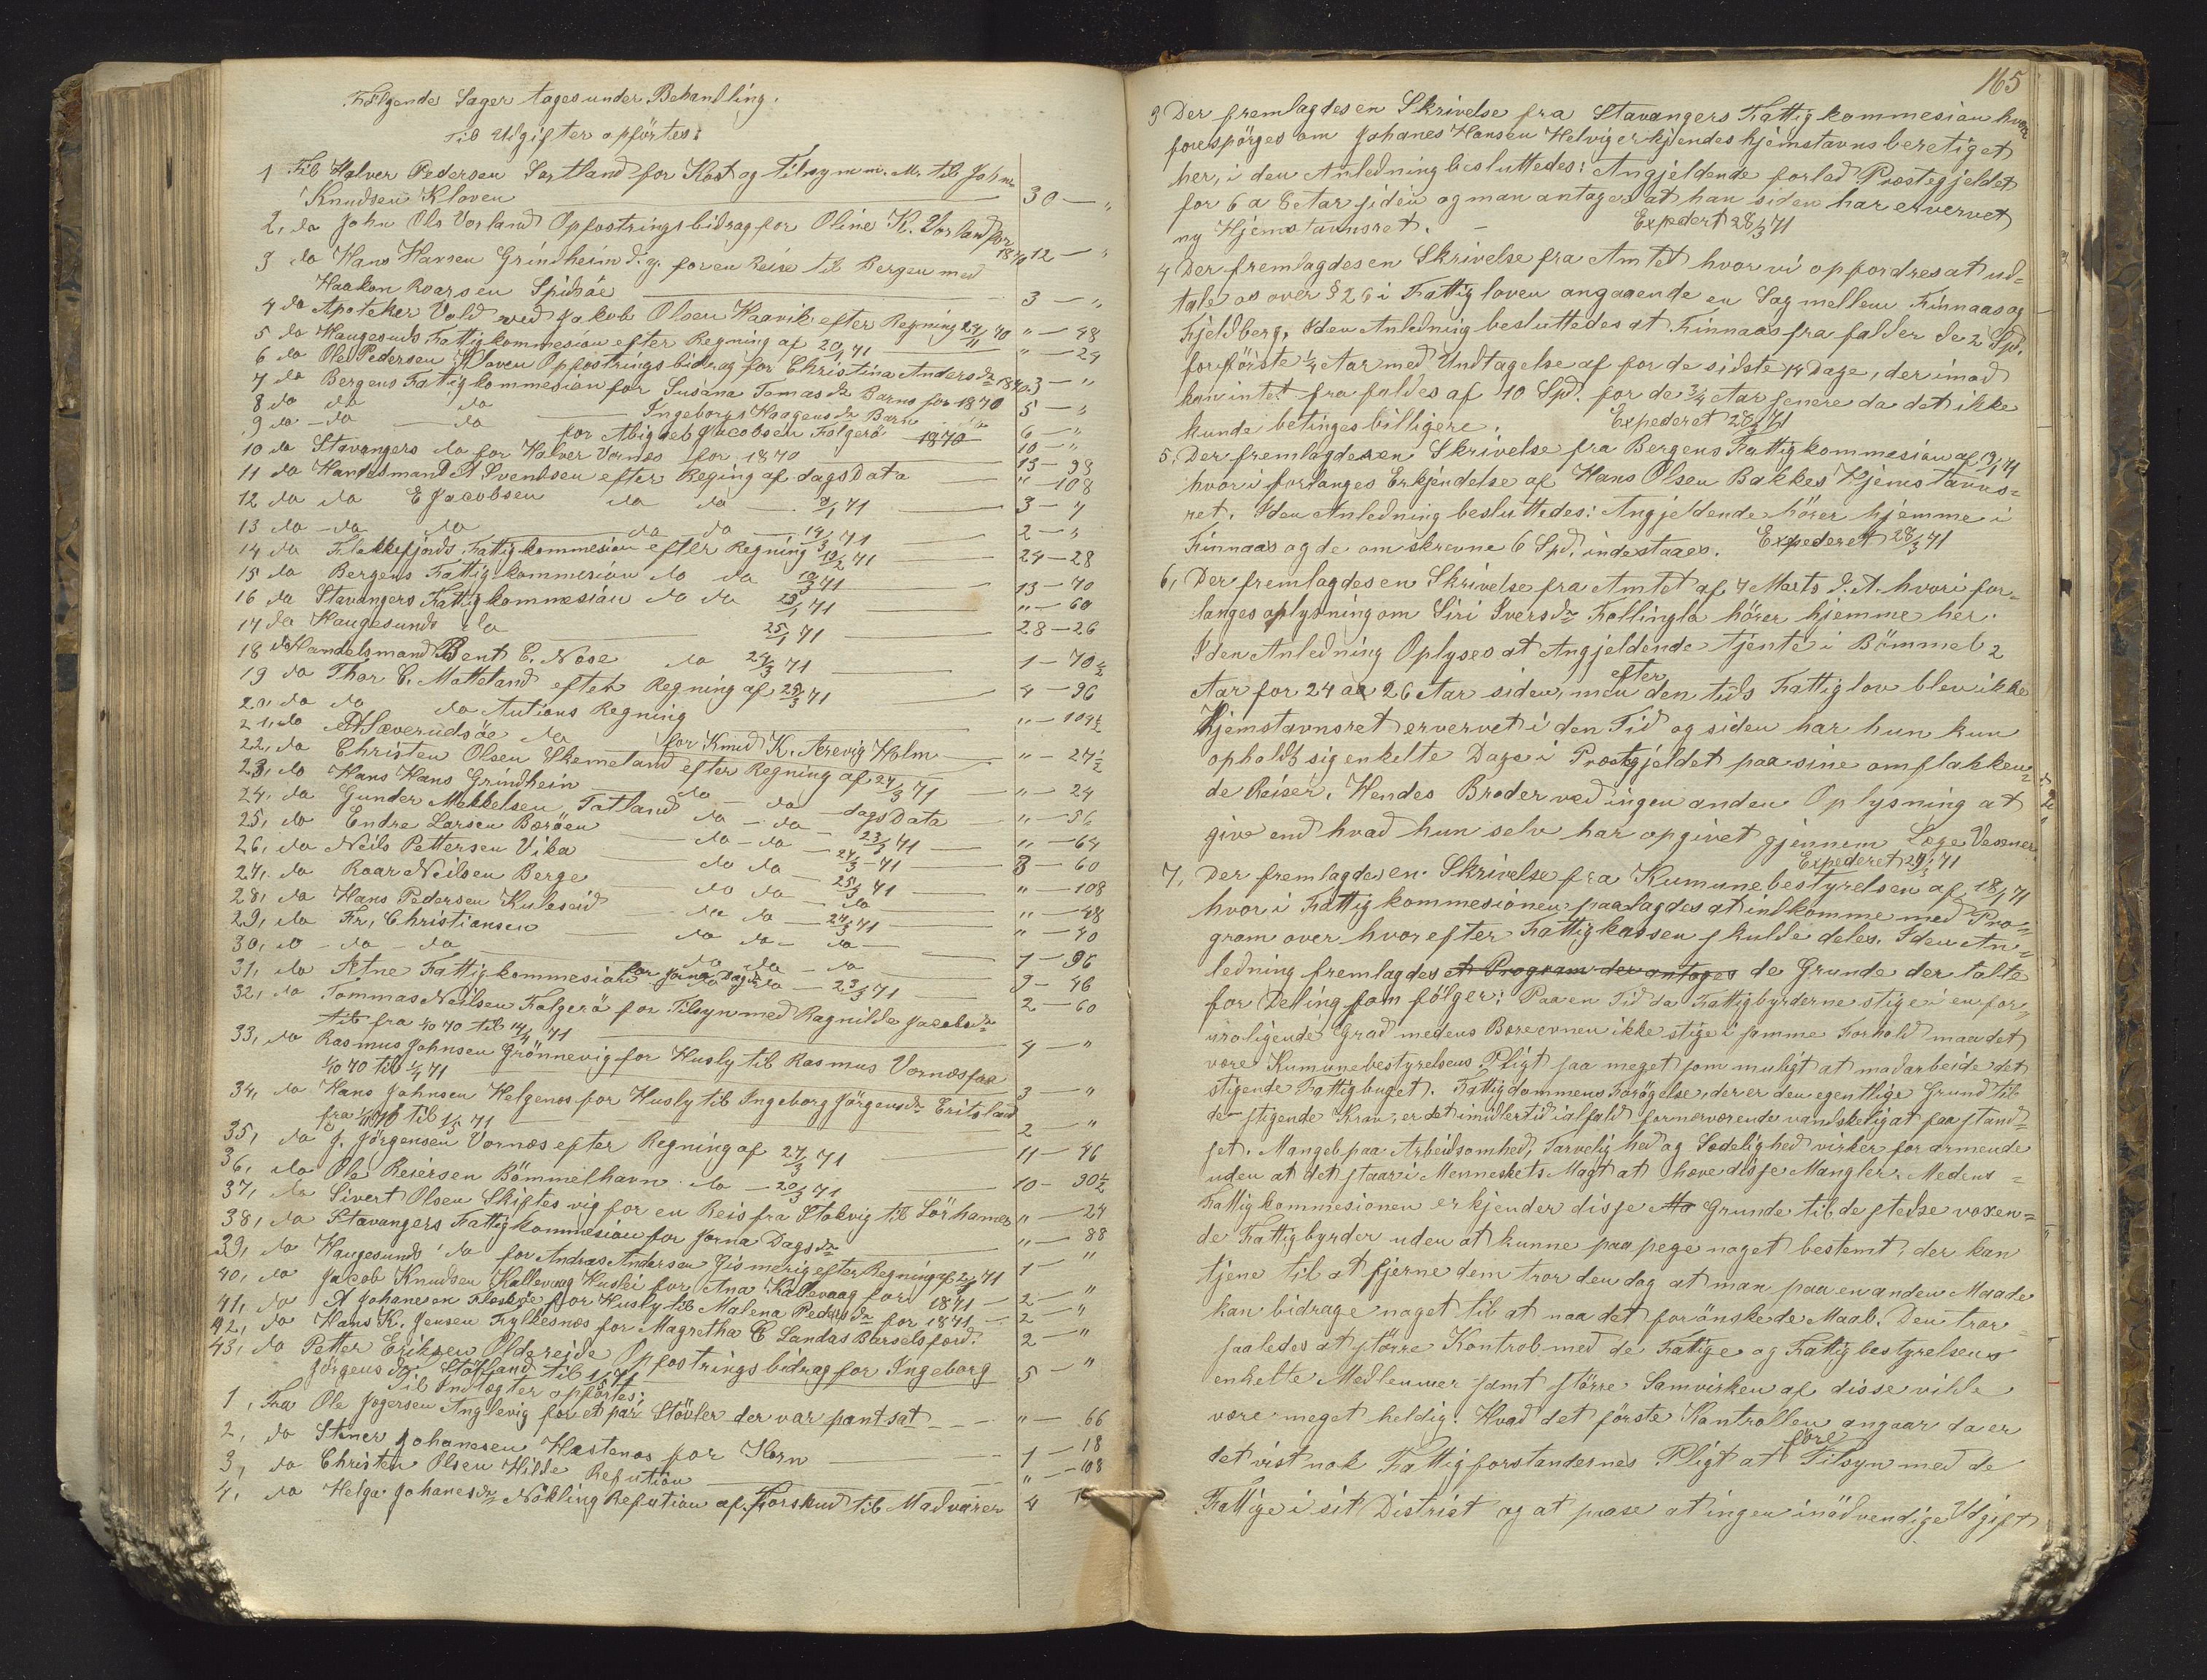 Følgende Sager tages under Behandling.
Til Udgifter opførtes:
1 Til Halver Pedersen Sortland for Kost og Tilsyn m. M. til Johns
Knudsen Kloven 30 — "
2, do John Ols Vorland Opfostringsbidrag for Oline K. Vorland for 1870 12 — "
3 do Hans Hansen Grindheim d. y. for en Reise til Bergen med
Haakon Roarsen Spidsøe 3 — "
4 do Apoteker Vold ved Jakob Olsen Haavik efter Regning 24/11 70 " — 48
5 do Haugesunds Fattigkommesion efter Regning af 20/1 71 " — 24
6 do Ole Pedersen Kloven Opfostringsbidrag for Christina Andersdr 1870 3 — "
7 do Bergens Fattigkommesion for Susana Tomasdr Barns for 1870 5 — "
8 do do do Ingeborg Haagensdr Barn do 6 — "
9 do — do — do for Abigael Jacobsen Folgerø 1870 10 — "
10 do Stavangers do for Halver Vornes for 1870 13 — 98
11 do Handelsmand A Svendsen efter Reging af dags Data " — 108
12 do do E Jacobsen do do 9/1 71 3 — 7
13 do — do do do do — 14/3 71 2 — "
14 do Flekkefjords Fattigkommesion efter Regning 13/2 71 24 — 28
15 do Bergens Fattigkommesion do do 10/3 71 13 — 70
16 do Stavangers Fattigkommesion do do 23/1 71 " — 60
17 do Haugesunds do 25/1 71 28 — 26
18 do Handelsmand Bent E. Nose do 24/3 71 1 — 70½
19 do Thor C. Matteland efter Regning af 29/3 71 4 — 96
20, do do do Autions Regning " — 109½
21, do A Sæverudsøe do for Knud K. Arevig Holm " — 27½
22, do Christen Olsen Skemeland efter Regning af 24/3 71 " — 24
23, do Hans Hans Grindhein do — do dags Data " — 36
24, do Gunder Mekkelsen Totland do — do 23/3 71 " — 64
25, do Endre Larsen Børøen do — do — 24/3 — 71 3 — 60
26, do Neils Pettersen Vika do do — 25/3 71 " — 108
27, do Roar Neilsen Berge do do — do " — 48
28, do Hans Pedersen Kuleseid do do — 24/3 71 " — 40
29, do Fr. Christiansen do do — do 1 — 96
30, do — do — do do do — do
31, do Etne Fattigkommesion for Jorna Dagsdr do — 23/3 71 9 — 46
32, do Tommas Neilsen Folgerø for Tilsyn med Ragnilde Jacobsdr 2 — 60
til fra 1/10 70 til 14/4 71 4 — "
33, do Rasmus Johnsen Grönnevig for Husly til Rasmus Vornes fra
1/10 70 til 1/4 71 3 — "
34, do Hans Johnsen Helgenos for Husly til Ingeborg Jörgensdr Eritsland
fra til 1/5 71 2 — "
35, do J. Jörgensen Vornæs efter Regning af 27/3 71 11 — 46
36, do Ole Reiersen Bömmelhavn do — 20/3 71 10 — 90½
37, do Sivert Olsen Skiftesvig for en Reis fra Stokvig til Lörhames " — 24
38, do Stavangers Fattigkommesion for Jorna Dagsdr " — 88
39, do Haugesunds do for Andras Andersen Gismerig efter Regning af 71 1 — "
40, do Jacob Knudsen Kallevaag Huslei for Ana Kallevaag for 1871 — 2 — "
41, do A Johanesen for Husly til Malena Pedersdr for 1871 — 2 — "
42, do Hans K. Jensen Fylkesnæs for Magretha E Landas Barselsford. 2 — "
43, do Petter Eriksen Oldereide Opfostringsbidrag for Ingeborg
Jörgensdr Stöfland til 1/5 71 5 — "
Til Indtægter opförtes:
1, Fra Ole Jogersen Anglevig for et par Stövler der var pantsat " — 66
2, do Stiner Johanesen Hæstenæs for Korn 1 — 18
3, do Christen Olsen Hilde Refution " — 108
4, do Helga Johanesdr Nökling Refution af Forskud til Madvarer 4
165
3 Der fremlagdes en Skrivelse fra Stavangers Fattigkommesion hvori
forespörges om Johanes Hansen Helvig erkjendes hjemstavnsberetiget
her, i den Anledning besluttedes: Angjeldende forlod Præstegjeldet
for 6 a 8 Aar siden og man antager at han siden har ervervet
ny Hjemstavnsret. — Expedert 28/3 71
4 Der fremlagdes en Skrivelse fra Amtet hvor vi opfordres at ud=
tale os over § 26 i Fattigloven angaaende en Sag mellem Finnaas og
Fjeldberg, I den Anledning besluttedes at Finnaas fra falder de 2 Spd.
for förste ¼ Aar med Undtagelse af for de sidste 14 Dage, derimod
kan intet fra faldes af 10 Spd. for de ¾ Aar senere da det ikke
kunde betinges billigere. Expederet 28/3 71
5, Der fremlagdes en Skrivelse fra Bergens Fattigkommesion af 19/1 71
hvori forlanges Erkjendelse af Hans Olsen Bakkes Hjemstavns=
ret. I den Anledning besluttedes: Angjeldende hörer hjemme i
Finnaas og de omskrevne 6 Spd. indestaaes. Expederet 28/3 71
6, Der fremlagdes en Skrivelse fra Amtet af 7 Marts d. A. hvori for=
langes oplysning om Siri Iversdr Follinglo hörer hjemme her.
I den Anledning Oplyses at Angjeldende tjente i Bömmel 2
Aar for 24 aa 26 Aar siden, men efter den tids Fattiglov blev ikke
Hjemstavnsret ervervet i den Tid og siden har hun kun
opholdt sig enkelte Dage i Præstegjeldet paa sine omflakken=
de Reiser. Hendes Broder ved ingen anden Oplysning at
give end hvad hun selv har opgivet gjennem Læge Vesener.
Expederet 29/3 71
7, Der fremlagdes en Skrivelse fra Kumunebestyrelsen af 18/1 71
hvori Fattigkommesionen paalagdes at indkomme med Pro=
gram over hvorefter Fattigkassen skulde deles. I den An=
ledning fremlagdes et Program der antoges de Grunde der talte
for Deling som fölger: Paa en Tid da Fattigbyrderne stige i en for=
uroligende Grad medens Bæreevnen ikke stige i samme Forhold maa det
være Kumunebestyrelsens Pligt saa meget som muligt at modarbeide det
stigende Fattigbuget. Fattigdommens Forögelse, der er den egentlige Grund til
de stigende Krav, er det imidlertid ialfald for nærværende vandskeligat faa stand=
set. Mangel paa Arbeidsomhed, Tarvelighed og Sædelighed virker forarmende
uden at det staar i Menneskets Magt at hæve disse Mangler. Medens =
Fattigkommesionen erkjender disse Grunde til de stedse voxen=
de Fattigbyrder uden at kunne paapege noget bestemt, der kan
tjene til at fjerne dem tror den dog at man paa en anden Maade
kan bidrage noget til at naa det forönskede Maal. Den tror
saaledes at större Kontrol med de Fattige og Fattigbestyrelsens
enkelte Medlemmer samt större Samvirken af disse vilde
være meget heldig. Hvad det förste Kontrollen angaar da er
det vist nok Fattigforstandernes Pligt at före Tilsyn med de
Fattige i sit Distrist og at paase at ingen inödvendige Udgift